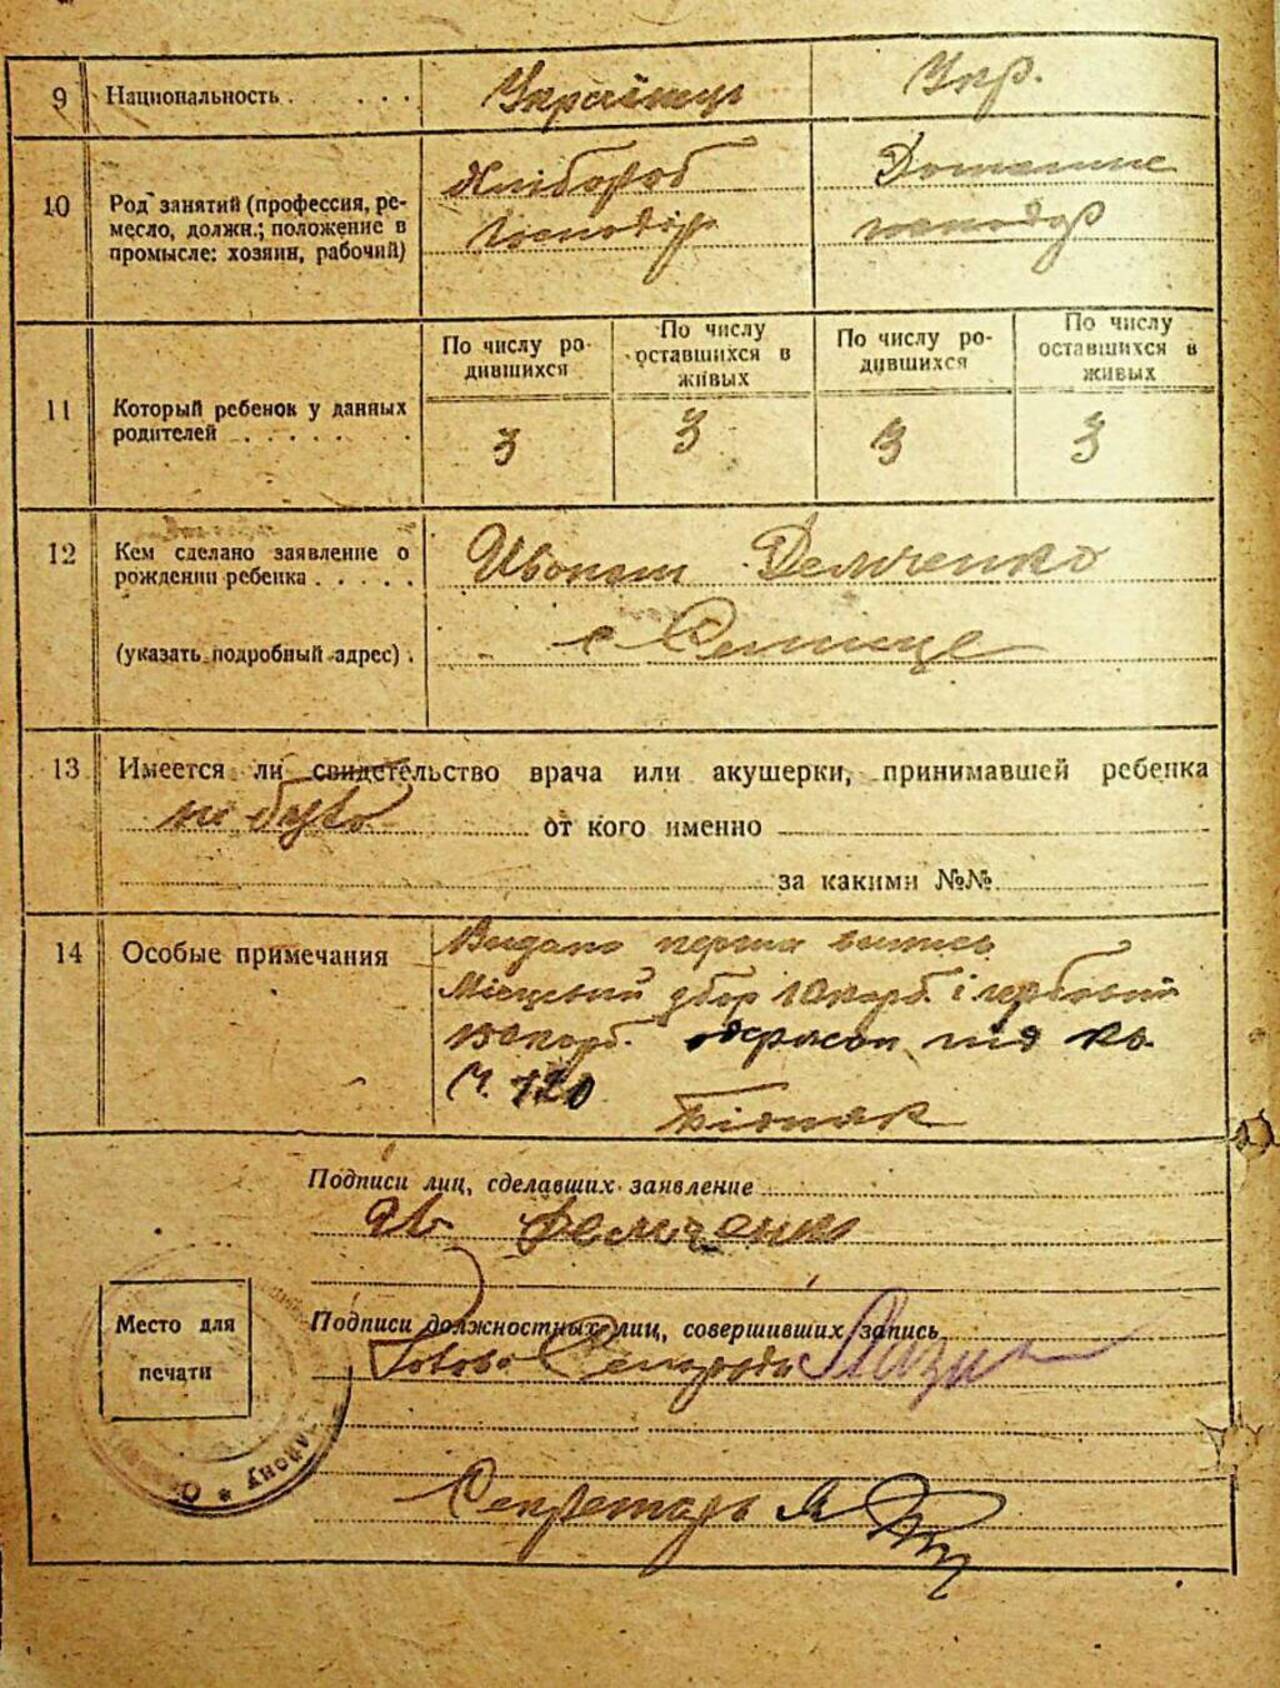 9 Национальность . . . . . Українець Укр.
10 Род занятий (профессия, ре-
месло, должн.; положение в
промысле: хозяин, рабочий)
Хлібороб
господар
Домашне
господар
11 Который ребенок у данных
родителей . . . . . . .
По числу ро-
дившихся
По числу
оставшихся в
живых
По числу ро-
дившихся
По числу
оставшихся в
живых
3 3 3 3
12 Кем сделано заявление о
рождении ребенка . . . . .
(указать подробный адрес) .
Демченко
с
13 Имеется ли свидетельство врача или акушерки, принимавшей ребенка
не було от кого именно
за какими №№
14 Особые примечания
Видано перша випись
Місцевий збор 10 карб. і гербовий
карб. під кв.
Ч. 120
Бідняк
Подписи лиц, сделавших заявление
Ів. Демченко
Подписи должностных лиц, совершивших запись
Голова Сельради
Место для
печати
району *
Секретарь